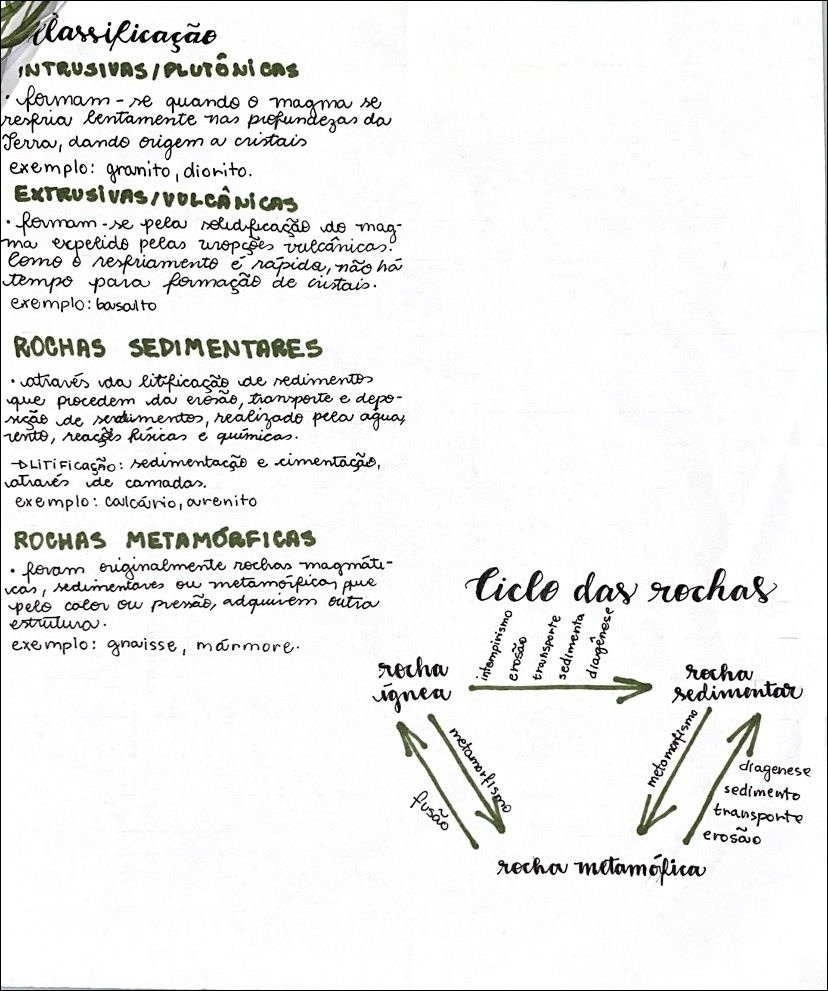 Classificação
INTRUSIVAS/PLUTÔNICAS
· formam-se quando o magma se
resfria lentamente nas profundezas da
Terra, dando origem a cristais
exemplo: granito, diorito.
EXTRUSIVAS/VULCÂNICAS
· formam-se pela solidificação do mag-
ma expelido pelas uropções vulcânicas.
Como o resfriamento é rápido, não há
tempo para formação de cristais.
exemplo: basalto
ROCHAS SEDIMENTARES
· através da litificação de sedimentos
que procedem da erosão, transporte e depo-
sição de sedimentos, realizado pela água,
vento, reações físicas e químicas.
→ LITIFICAÇÃO: sedimentação e cimentação,
através de camadas.
exemplo: calcário, arenito
ROCHAS METAMÓRFICAS
· foram originalmente rochas magmáti-
cas, sedimentares ou metamórficas, que
pelo calor ou pressão, adquirem outra
estrutura.
exemplo: gnaisse, mármore.
Ciclo das rochas
intempirismo
erosão
transporte
sedimenta
diagênese
rocha
ígnea
rocha
sedimentar
metamorfismo
fusão
metamorfismo
diagenese
sedimento
transporte
erosão
rocha metamófica